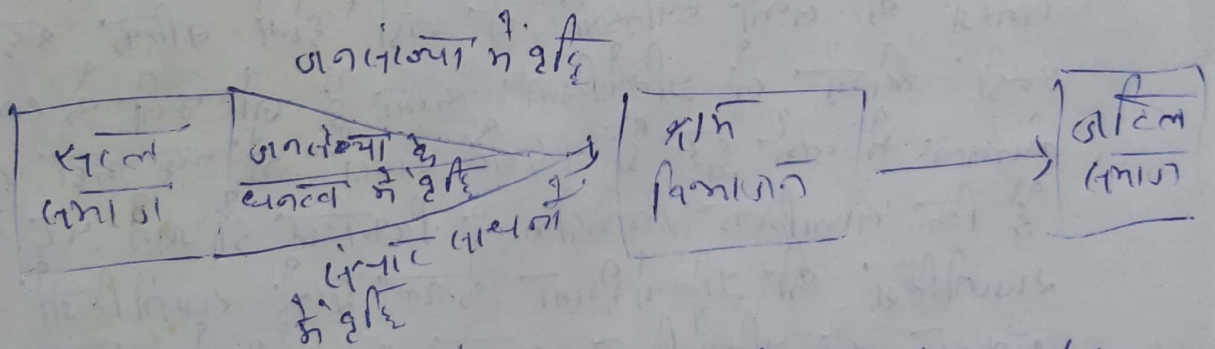 जनसंख्या में वृद्धि
सरल
समाज
जनसंख्या के
घनत्व में वृद्धि
संचार साधनों
में वृद्धि
श्रम
विभाजन
जटिल
समाज